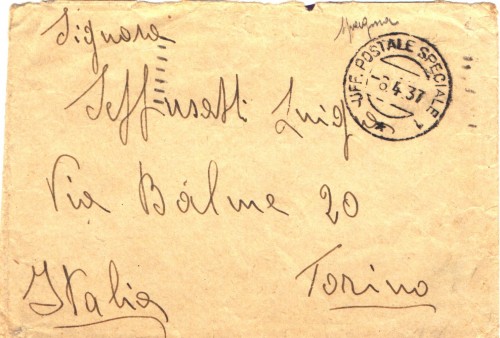 Signora
Spagna
UFF. POSTALE SPECIALE 1
-8.4.37
Luig
Via Balme 20
Italia
Torino